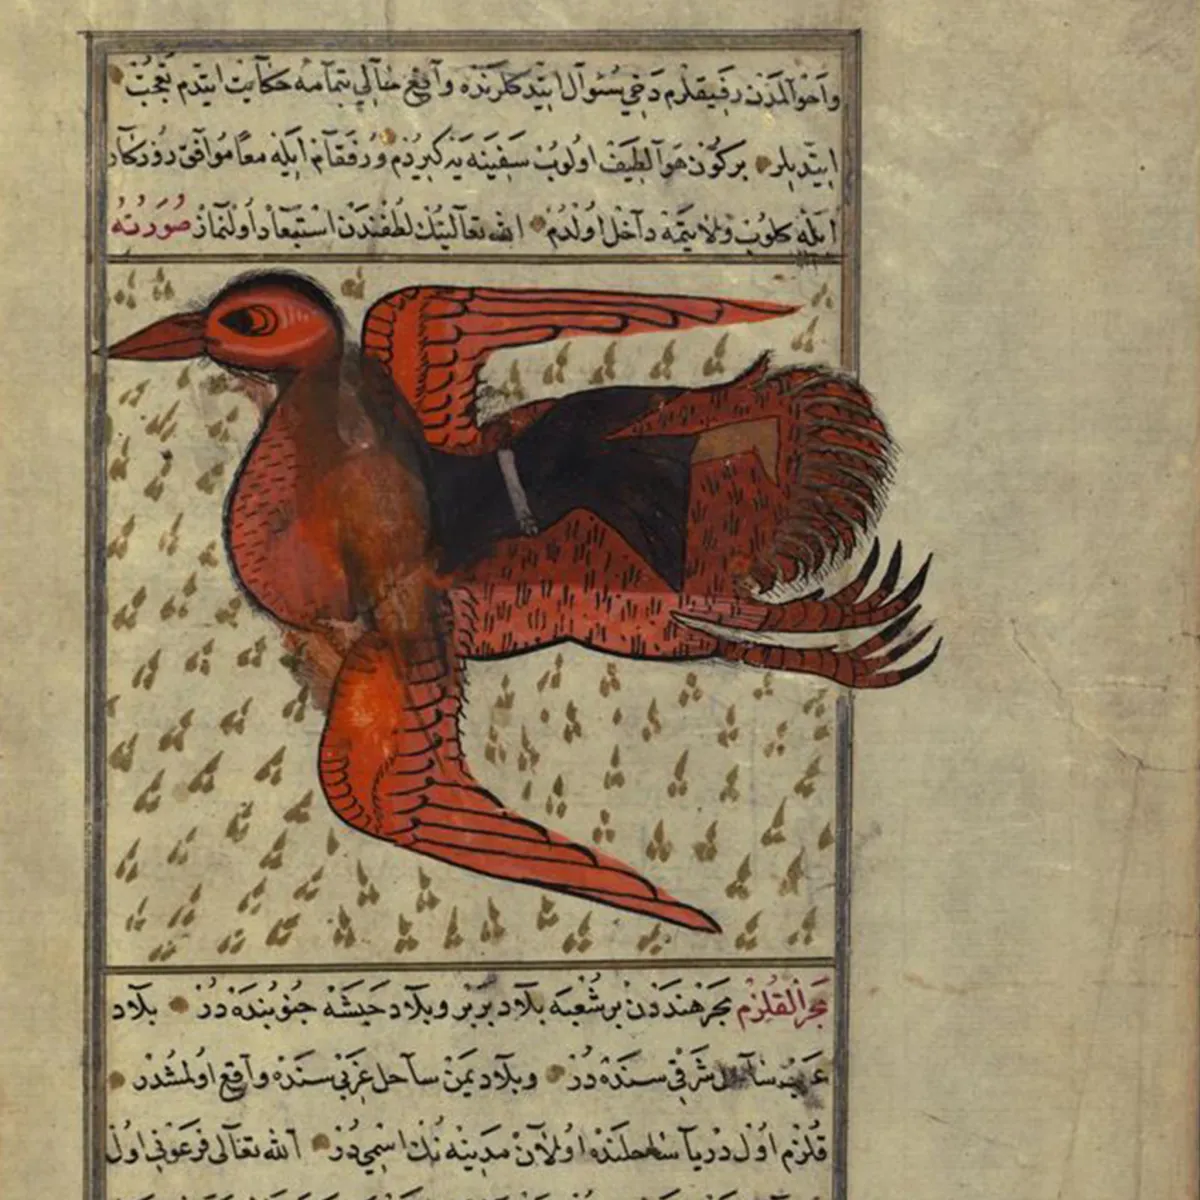 واحوالمدن رفيقلرم دخی سؤال ايتديكلرنده واقع حالی بتمامه حكايت ايتدم تعجب
ايتديلر بركون هوا لطيف اولوب سفينه يه كيردم ورفقام ايله معا موافق روزكار
ايله كلوب ولايتمه داخل اولدم الله تعالينك لطفندن استبعاد اولنماز صورته
بحر القلزم بحر هنددن بر شعبه بلاد بربر وبلاد حبشه جنوبنده در بلاد
عرب ساحل شرقی سنده در وبلاد يمن ساحل غربی سنده واقع اولمشدر
قلزم اول دريا ساحلنده اولان مدينه نك اسمی در الله تعالی فرعونی اول